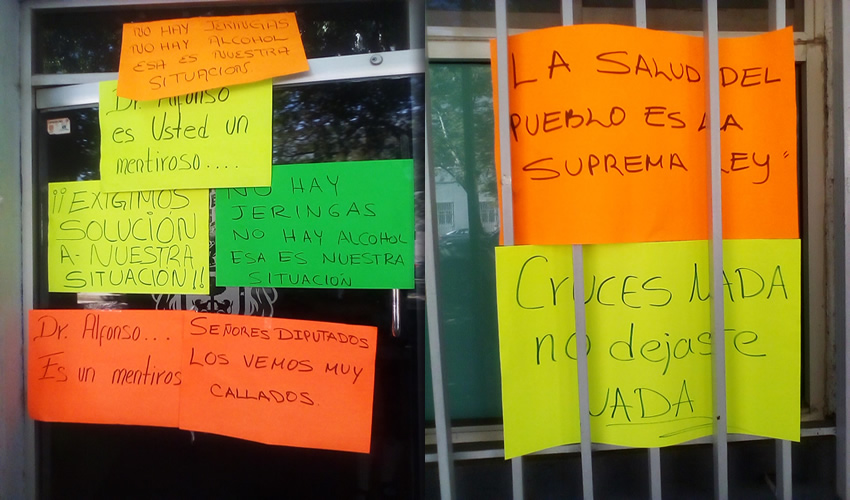 NO HAY JERINGAS
NO HAY ALCOHOL
ESA ES NUESTRA
SITUACION
Dr. Alfonso
es Usted un
mentiroso.....
¡¡EXIGIMOS
SOLUCIÓN
A-NUESTRA
SITUACIÓN!!
NO HAY
JERINGAS
NO HAY ALCOHOL
ESA ES NUESTRA
SITUACIÓN
Dr. Alfonso...
Es un mentiros
SEÑORES DIPUTADOS
LOS VEMOS MUY
CALLADOS.
LA SALUD DEL
PUEBLO ES LA
SUPREMA LEY"
CRUCES NADA
no dejaste
NADA